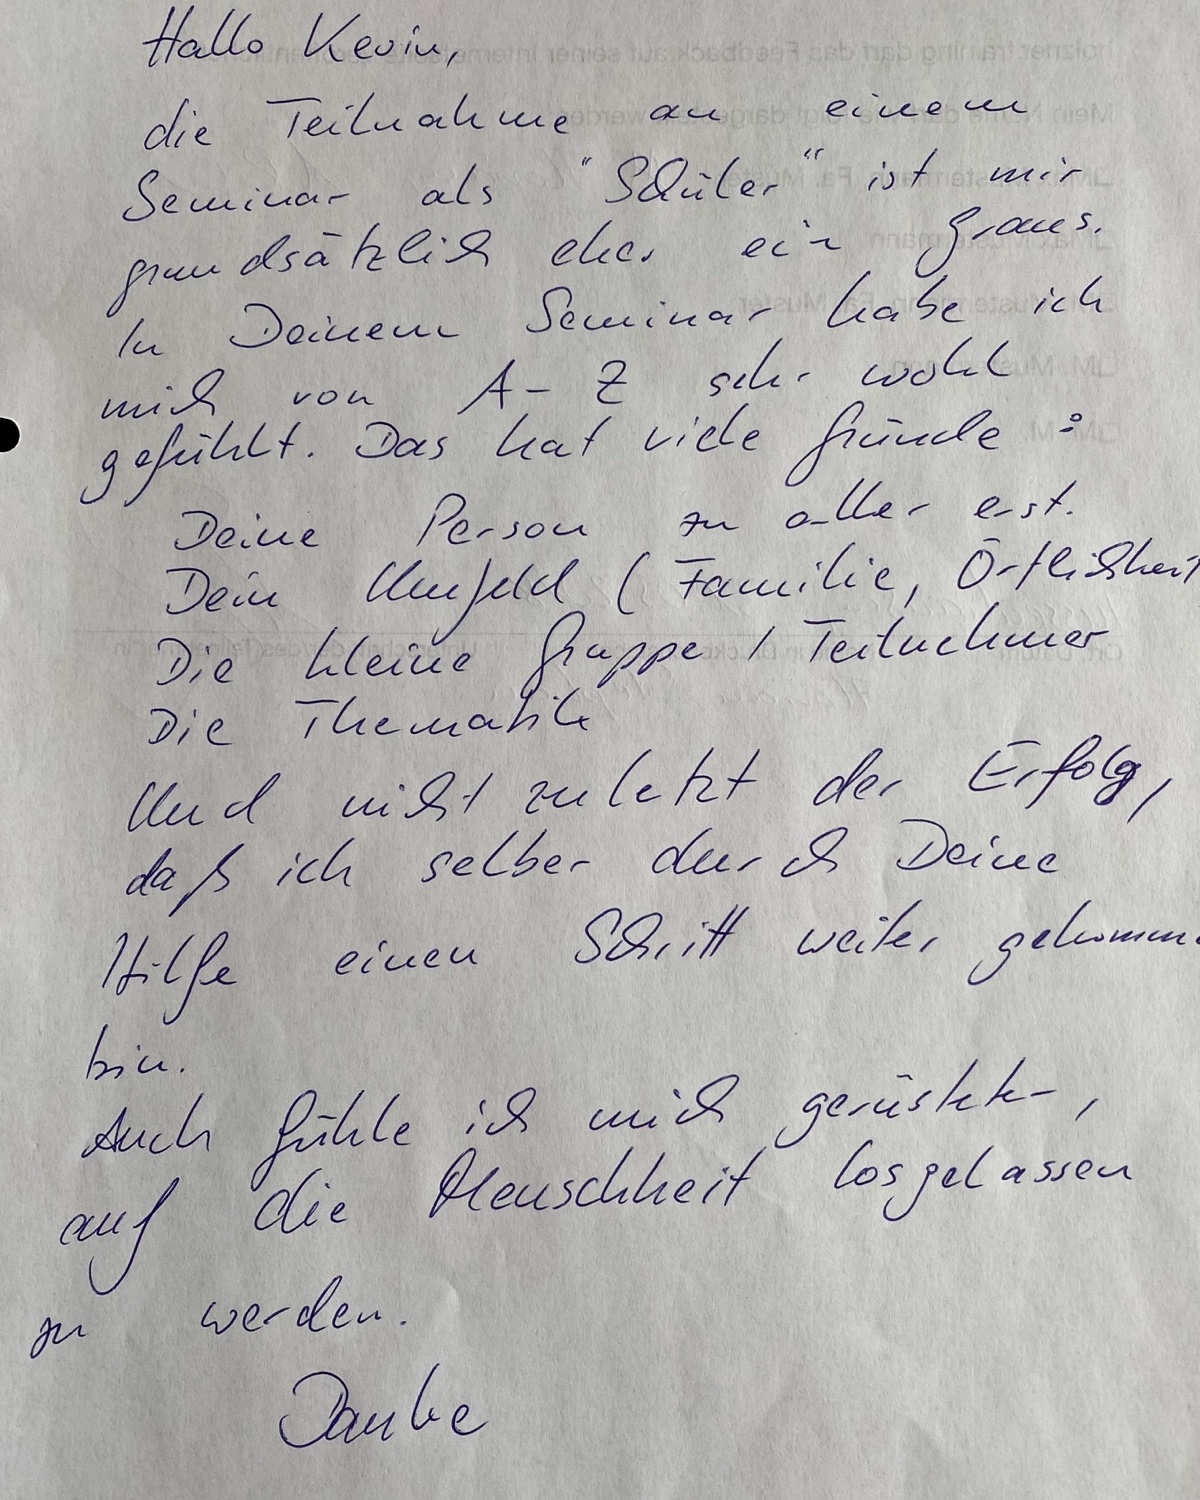 Hallo Kevin,
die Teilnahme an einem
Seminar als "Schüler" ist mir
grundsätzlich eher ein Graus.
In Deinem Seminar habe ich
mich von A-Z sehr wohl
gefühlt. Das hat viele Gründe:
Deine Person zu aller erst.
Dein Umfeld (Familie, Örtlichkeit
Die kleine Gruppe / Teilnehmer
Die Thematik
Und nicht zuletzt der Erfolg,
daß ich selber durch Deine
Hilfe einen Schritt weiter gekomme
bin.
Auch fühle ich mich gerüstet,
auf die Menschheit losgelassen
zu werden.
Danke